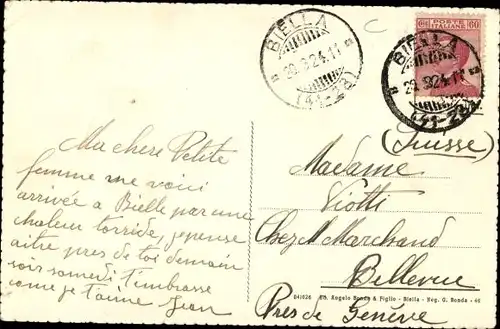 BIELLA
29.8.24.11
(41-23)
POSTE ITALIANE
BIELLA
29.8.24.11
(41-23)
(Suisse)
Ma chere Petite
femme me voici
arrivée a Bielle par une
chaleur torride, je pense
aitre pres de toi demain
soir samedi t'embrasse
come je t'aime Jean
Madame
Viotti
Chez M Marchand
Bellevue
Pres de Genéve
Ed. Angelo Bonda & Figlio - Biella - Neg. G. Bonda - 46